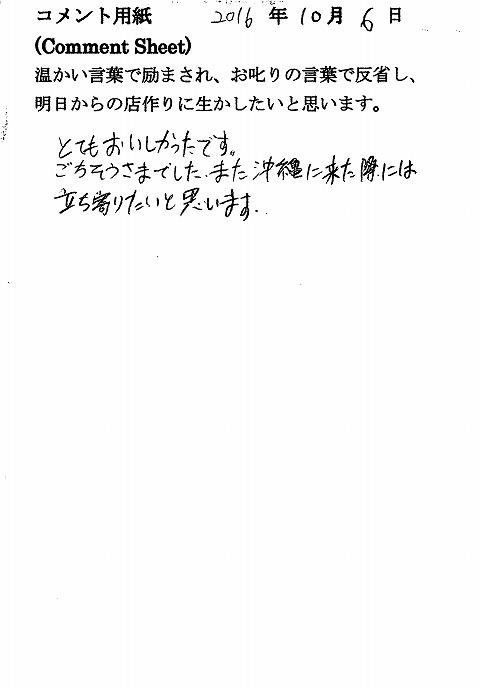 コメント用紙 2016 年 10 月 6 日
(Comment Sheet)
温かい言葉で励まされ、お叱りの言葉で反省し、
明日からの店作りに生かしたいと思います。
とてもおいしかったです。
ごちそうさまでした.また沖縄に来た際には
立ち寄りたいと思います.